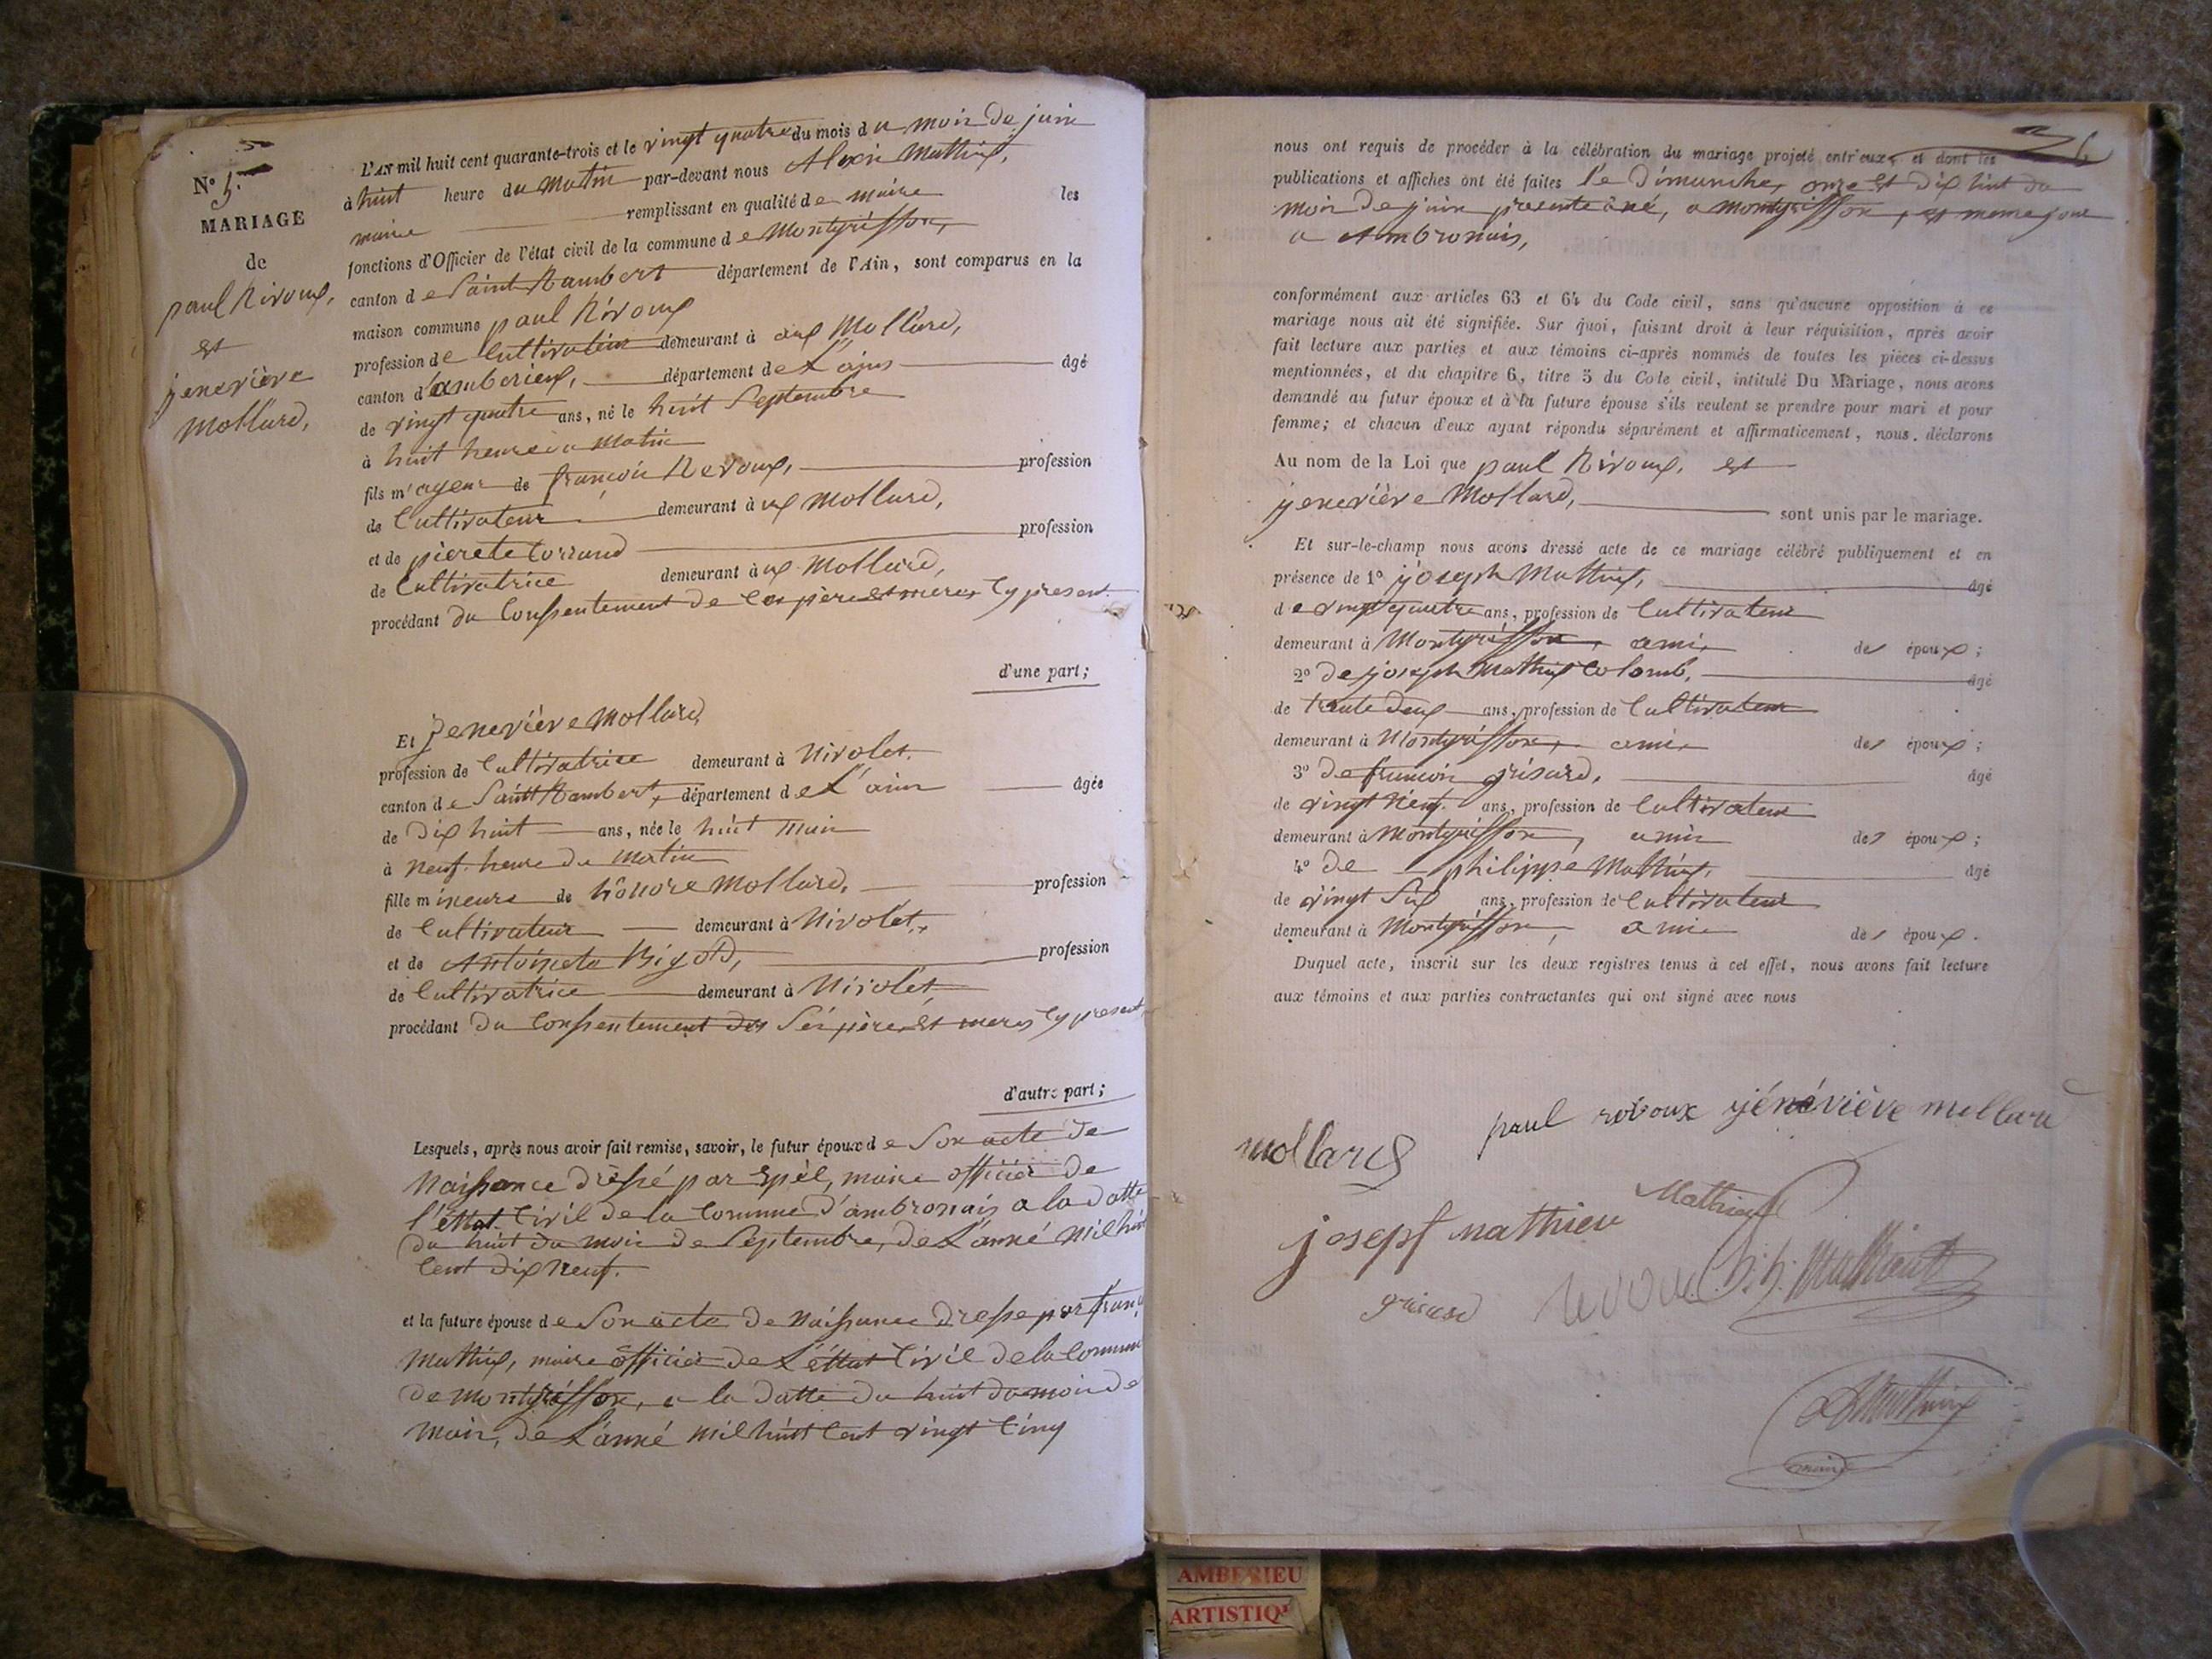 N° 5.
MARIAGE
de
paul Révoux,
et
jeneviève
Mollard,
L'AN mil huit cent quarante-trois et le vingt quatre du mois du moir de juin
à huit heure du Matin par-devant nous Alexis Mathieux,
maire remplissant en qualité de maire les
fonctions d'Officier de l'état civil de la commune de Montgriffon,
canton de Saint Rambert département de l'Ain, sont comparus en la
maison commune paul Révoux
profession de Cultivateur demeurant à aux Mollard,
canton d'amberieux, département de L'ains âgé
de vingt quatre ans, né le huit Septembre
à huit heure du Matin
fils m'ageur de françois Revoux, profession
de Cultivateur demeurant à ux Mollard,
et de pierete profession
de Cultivatrice demeurant à ux Mollard,
procédant du Consentement de Ces père et mères Cy present.
d'une part;
Et jeneviève Mollard,
profession de Cultivatrice demeurant à Nivolet.
canton de Saintt Rambert, département de L'ain âgée
de Dix huit ans, née le huit Mair
à neuf heure du Matin
fille mineure de hônore Mollard, profession
de Cultivateur demeurant à Nivolet,
et de Antoinete Bigod, profession
de Cultivatrice demeurant à Nivolet,
procédant du Consentement des Sés père et meres Cy present,
d'autre part;
Lesquels, après nous avoir fait remise, savoir, le futur époux de Son acte de
Naissance dréssé par maire officier de
l'éttat Civil de la Comune d'ambronais a la datte
du huit du moir de Septembre, de L'anné Mil huit
Cent dix Neuf.
et la future épouse de Son acte de Naissance dresse par
Mathieux, maire officier de L'éttat Civil de la Commun
de Montgriffon, a la datte du huit du moir de
Mair, de L'anné Mil huit Cent vingt Cinq
nous ont requis de procéder à la célébration du mariage projeté entr'eux, et dont les
publications et affiches ont été faites l'e Dimanche, onze et dix huit du
moir de juin presente ané, a montgriffon, et meme jour
a Ambronais,
conformément aux articles 63 et 64 du Code civil, sans qu'aucune opposition à ce
mariage nous ait été signifiée. Sur quoi, faisant droit à leur réquisition, après avoir
fait lecture aux parties et aux témoins ci-après nommés de toutes les pièces ci-dessus
mentionnées, et du chapitre 6, titre 5 du Code civil, intitulé Du Mariage, nous avons
demandé au futur époux et à la future épouse s'ils veulent se prendre pour mari et pour
femme; et chacun d'eux ayant répondu séparément et affirmativement, nous. déclarons
Au nom de la Loi que paul Révoux, et
jeneviève Mollard, sont unis par le mariage.
Et sur-le-champ nous avons dressé acte de ce mariage célébré publiquement et en
présence de 1° joseph Mathieux, âgé
de vingt quatre ans, profession de Cultivateur
demeurant à Montgriffon, ami, des époux;
2° De joseph Mathieux Colomb, âgé
de trente deux ans, profession de Cultivateur
demeurant à Montgriffon, ami, des époux;
3° De françoir grisard, âgé
de vingt Neuf. ans, profession de Cultivateur
demeurant à Montgriffon, amir des époux;
4° de philippe Mathieux, âgé
de vingt Six ans, profession de Cultivateur
demeurant à Montgriffon, amie des époux.
Duquel acte, inscrit sur les deux registres tenus à cet effet, nous avons fait lecture
aux témoins et aux parties contractantes qui ont signé avec nous
paul révoux jénéviève mollard
mollard
josepf mathieu Mathieux
grisard revoux ph. Mathieux
AMathieux
maire
AMBERIEU
ARTISTIQ